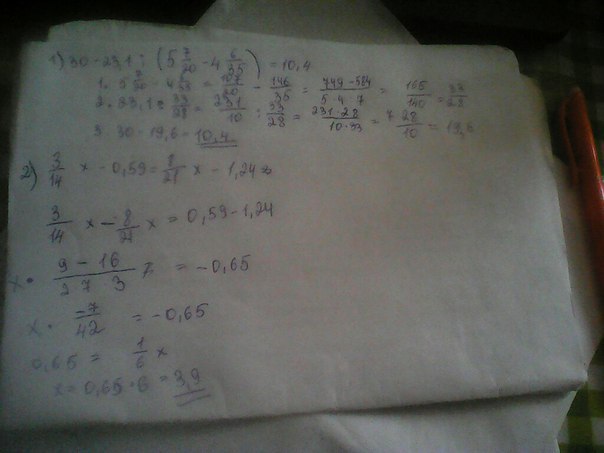 1) 30 - 23,1 : (5 7/20 - 4 6/35) = 10,4
1. 5 7/20 - 4 6/35 = 107/20 - 146/35 = 749-584 / 5 4 7 = 165/140 = 33/28
2. 23,1 : 33/28 = 231/10 : 33/28 = 231·28 / 10·33 = 7 28/10 = 19,6
3 30 - 19,6 = 10,4
2) 3/14 x - 0,59 = 8/21 x - 1,24
3/14 x - 8/21 x = 0,59 - 1,24
x · 9 - 16 / 2 7 3 = -0,65
x · -7/42 = -0,65
0,65 = 1/6 x
x = 0,65 · 6 = 3,9